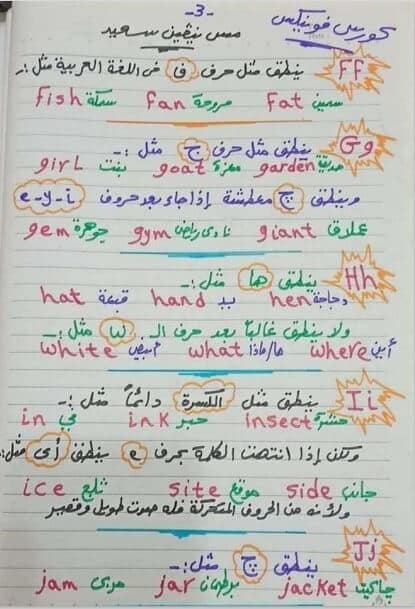 -3-
كورس فونيكس
مس نيفين سعيد
Ff ينطق مثل حرف ف فى اللغة العربية مثل :-
سمين Fat مروحة fan سمكة fish
Gg ينطق مثل حرف ج مثل :-
حديقة garden معزة goat بنت girl
وينطق ج معطشة إذا جاء بعد حروف e-y-i
عملاق giant نادى رياضى gym جوهرة gem
Hh ينطق ها مثل :-
دجاجة hen يد hand قبعة hat
ولا ينطق غالباً بعد حرف الـ W مثل :-
أين where ما/ماذا what أبيض white
Ii ينطق مثل الكسرة دائماً مثل :-
حشرة insect حبر ink في in
ولكن إذا انتهت الكلمة بحرف e ينطق أى مثل :-
جانب side موقع site ثلج ice
ولأنه من الحروف المتحركة فله صوت طويل وقصير
Jj ينطق چ مثل :-
چاكيت jacket برطمان jar مربى jam